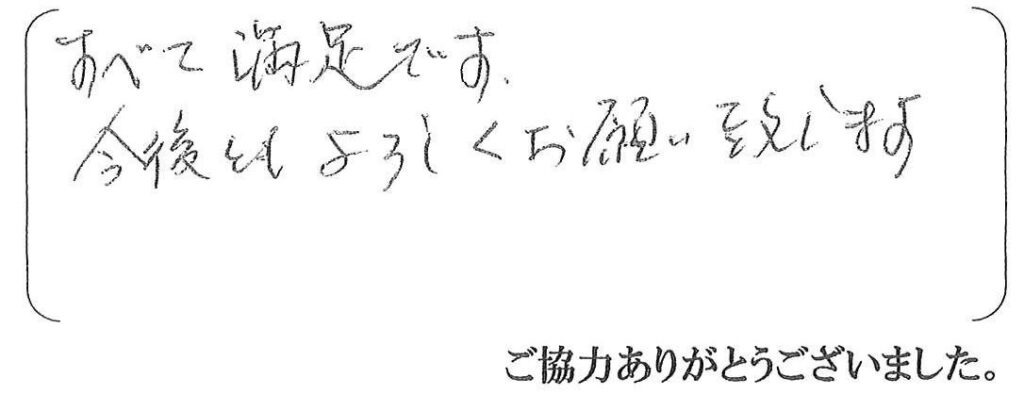 すべて満足です.
今後とも よろしくお願い致します
ご協力ありがとうございました。